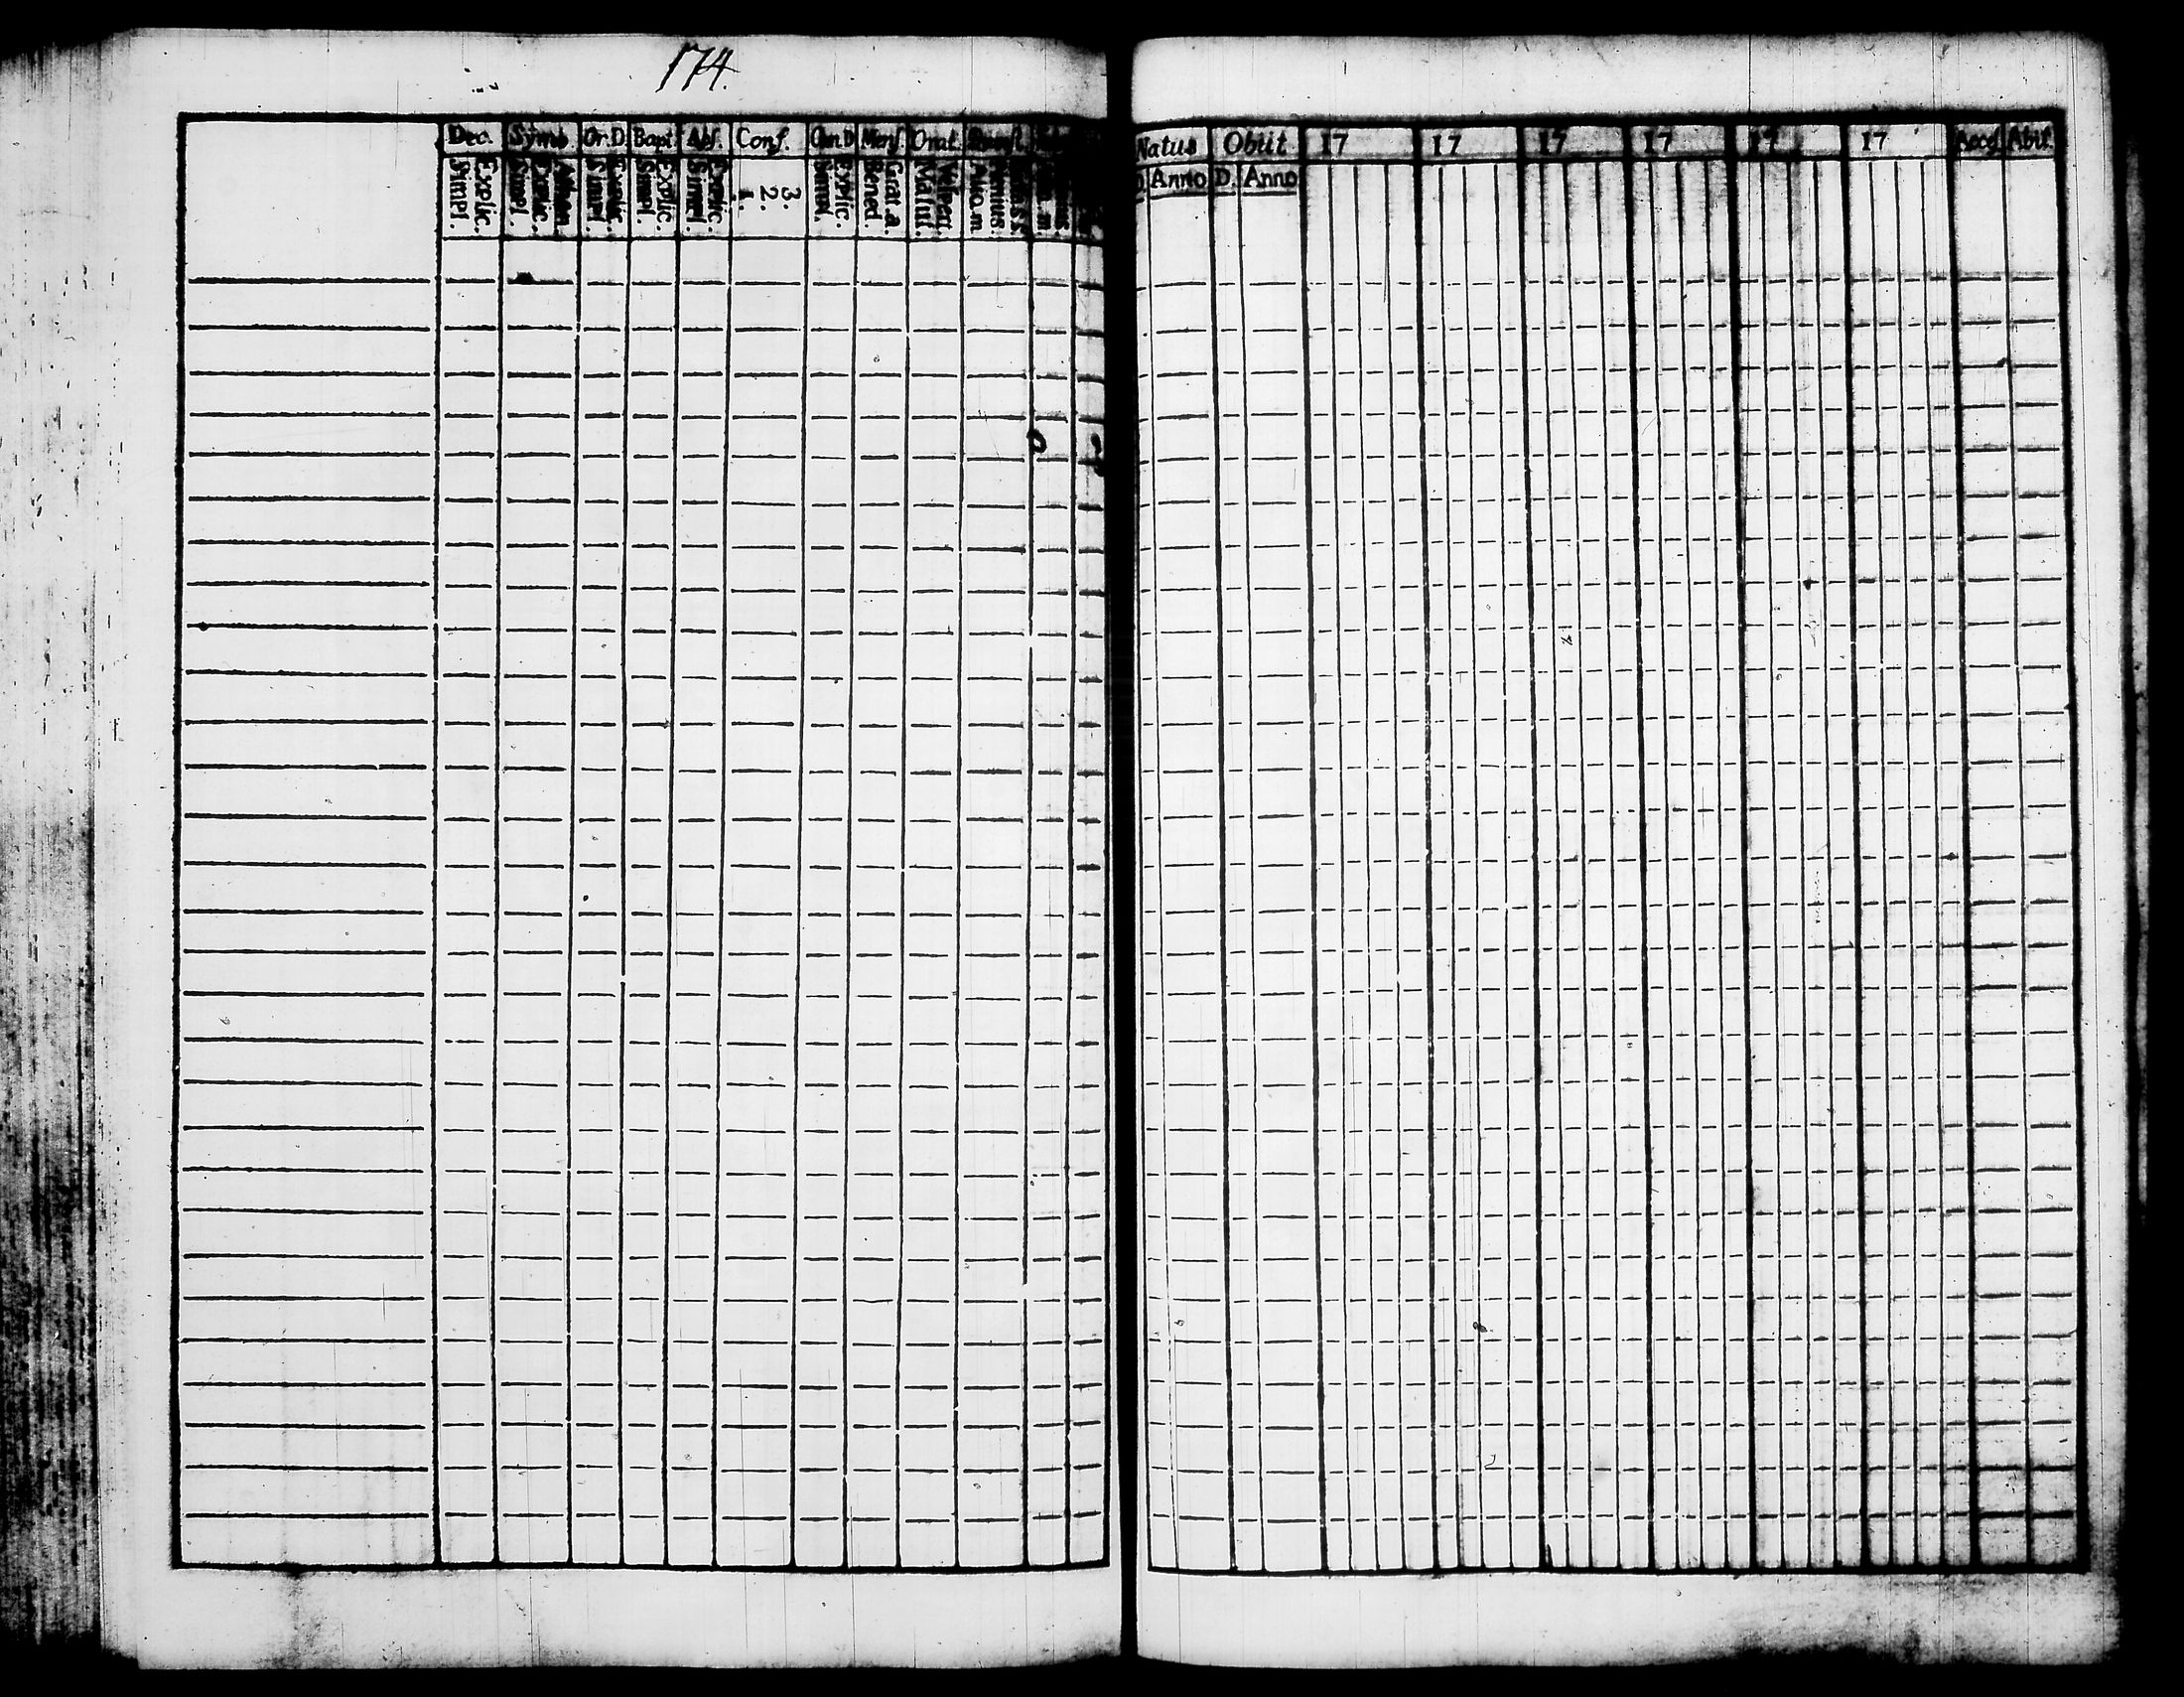 174.
Dec. Symb Or.D. Bapt. Abs. Conf. Cœn.D Mens. Orat.
Explic. Simpl.
Athan. Explic. Simpl.
Explic. Simpl.
Explic. Simpl.
Explic. Simpl.
3. 2. 1.
Explic. Simpl.
Grat. a. Bened.
Vesper. Matut.
Natus Obiit 17 17 17 17 17 17 Acced Abit.
D. Anno D. Anno